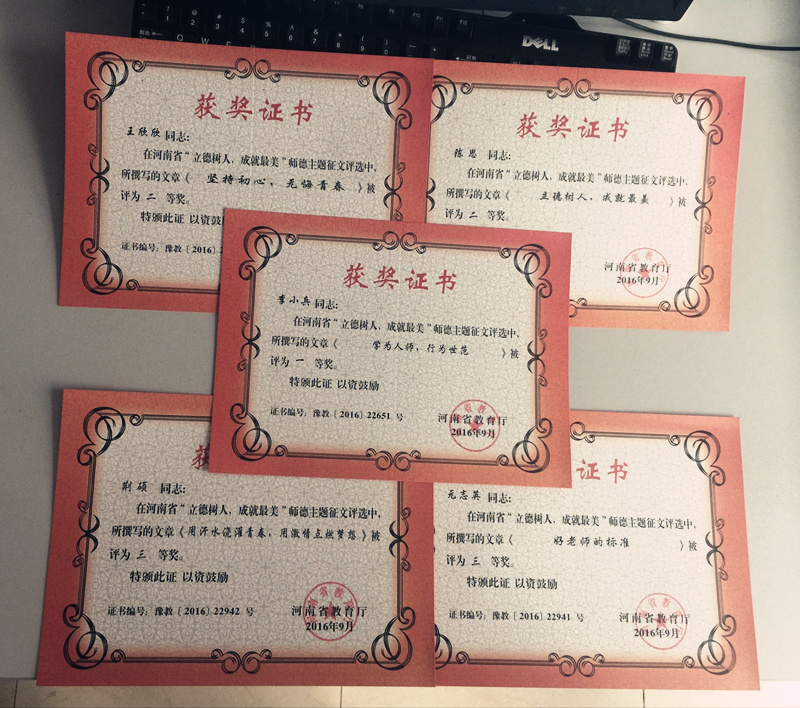 DELL
获奖证书
王欣欣 同志:
在河南省“立德树人，成就最美”师德主题征文评选中，
所撰写的文章《 坚持初心，无悔青春 》被
评为 二 等奖。
特颁此证 以资鼓
证书编号：豫教〔2016〕
获奖证书
陈思 同志:
在河南省“立德树人，成就最美”师德主题征文评选中，
所撰写的文章《 立德树人，成就最美 》被
评为 二 等奖。
河南省教育厅
2016年9月
获奖证书
李小兵 同志:
在河南省“立德树人，成就最美”师德主题征文评选中，
所撰写的文章《 学为人师，行为世范 》被
评为 一 等奖。
特颁此证 以资鼓励
证书编号：豫教〔2016〕22651 号
河南省教育厅
2016年9月
荆硕 同志:
在河南省“立德树人，成就最美”师德主题征文评选中，
所撰写的文章《用汗水浇灌青春，用激情点燃梦想》被
评为 三 等奖。
特颁此证 以资鼓励
证书编号：豫教〔2016〕22942 号
河南省教育厅
2016年9月
证书
元志英 同志:
在河南省“立德树人，成就最美”师德主题征文评选中，
所撰写的文章《 好老师的标准 》被
评为 三 等奖。
特颁此证 以资鼓励
证书编号：豫教〔2016〕22941 号
河南省教育厅
2016年9月